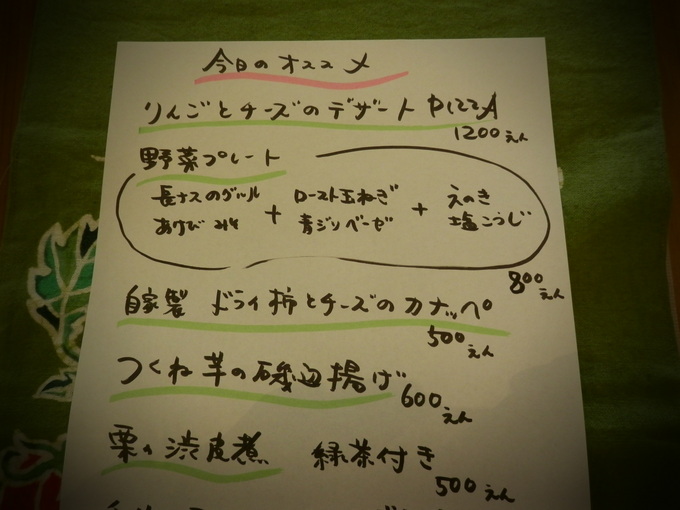 今日のオススメ
りんごとチーズのデザート PIZZA
1200えん
野菜プレート
長ナスのグリル + ロースト玉ねぎ + えのき
あけび みそ 青ジソベーゼ 塩こうじ
800えん
自家製 ドライ柿とチーズのカナッペ
500えん
つくね芋の磯辺揚げ
600えん
栗の渋皮煮 緑茶付き
500えん